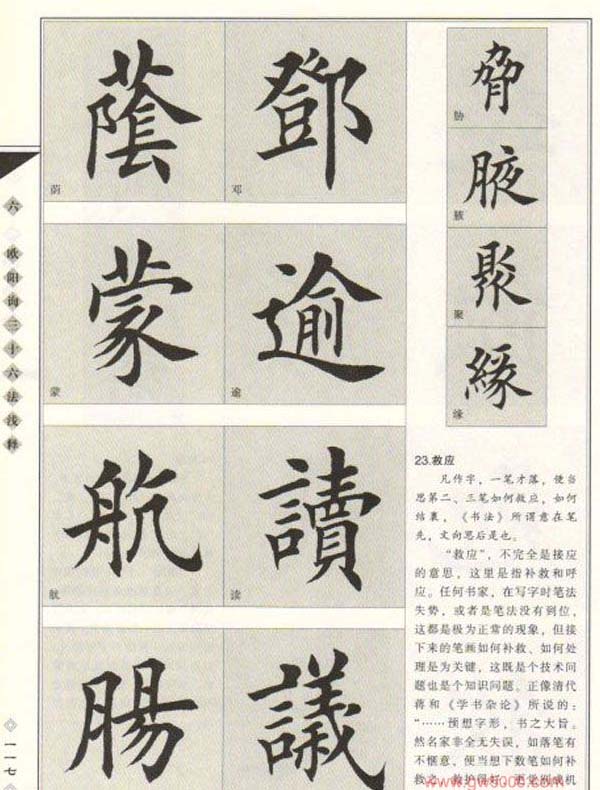 六 欧阳询三十六法浅释
一一七
蔭
荫
鄧
邓
蒙
蒙
逾
逾
航
航
讀
读
腸
議
脅
胁
腋
腋
聚
聚
緣
缘
23.救应
凡作字，一笔才落，便当
思第二、三笔如何救应，如何
结裹，《书法》所谓意在笔
先，文向思后是也。
“救应”，不完全是接应
的意思，这里是指补救和呼
应。任何书家，在写字时笔法
失势，或者是笔法没有到位，
这都是极为正常的现象，但接
下来的笔画如何补救、如何处
理是为关键，这既是个技术问
题也是个知识问题。正像清代
蒋和《学书杂论》所说的：
“……预想字形，书之大旨。
然名家非全无失误，如落笔有
不惬意，便当想下数笔如何补
救之，救护得好，更觉别成机